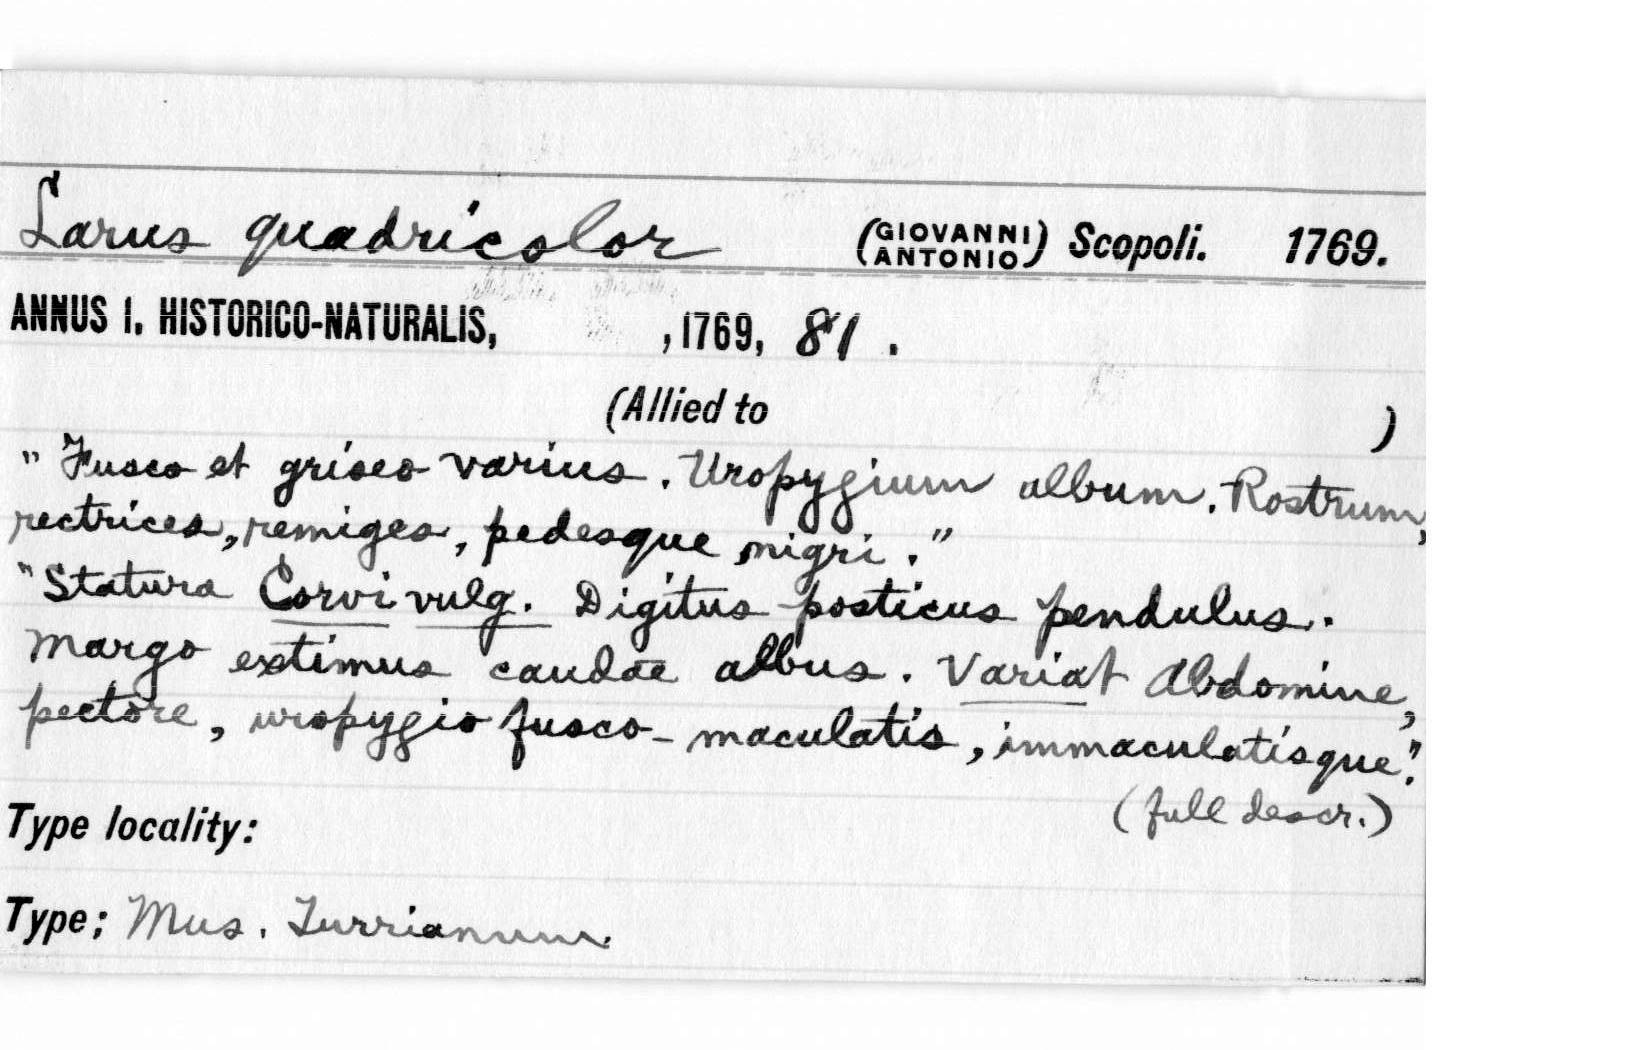 Larus quadricolor (GIOVANNI ANTONIO) Scopoli. 1769.
ANNUS I. HISTORICO-NATURALIS, , 1769, 81 .
(Allied to )
"Fusco et griseo varius. Uropygium album. Rostrum,
rectrices, remiges, pedesque nigri."
"Statura Corvi vulg. Digitus posticus pendulus.
Margo extimus caudae albus. Variat Abdomine,
pectore, uropygio fusco-maculatis, immaculatisque".
(full descr.)
Type locality:
Type; Mus. Turrianum.